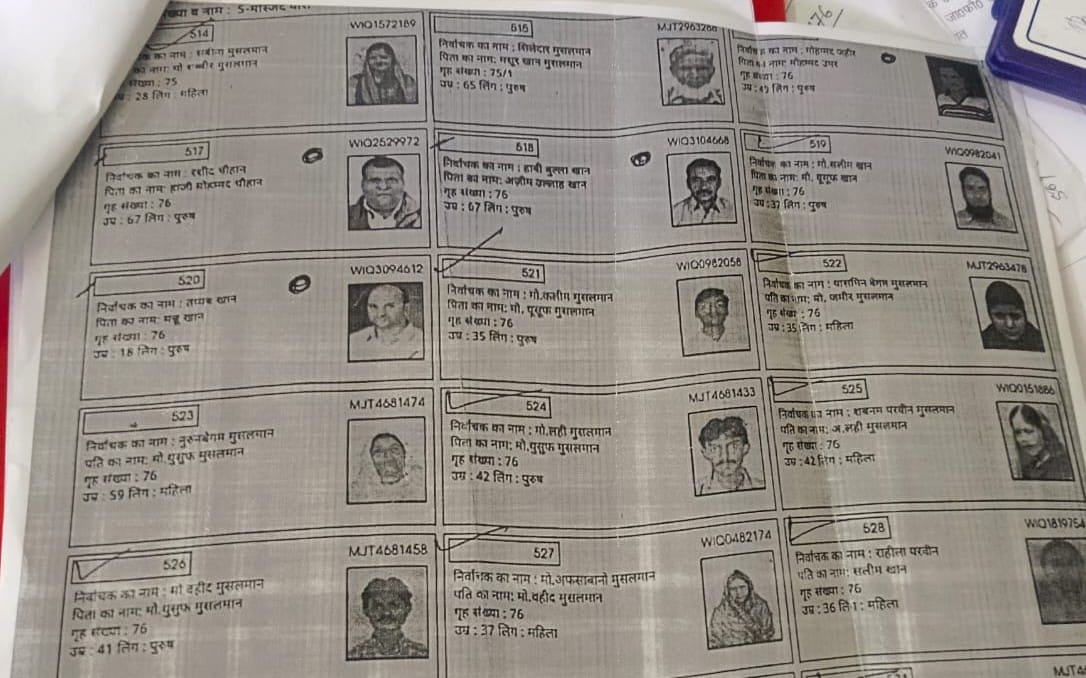 व नाम : 5-मस्जिद
514
WIQ1572189
नाम : सबीना मुसलमान
नाम: मो शब्बीर मुसलमान
संख्या : 75
28 लिंग : महिला
515
MJT2963266
निर्वाचक का नाम : सिलेदार मुसलमान
पिता का नाम: मसूर खान मुसलमान
गृह संख्या : 75/1
उम्र : 65 लिंग : पुरुष
निर्वाचक का नाम : मोहम्मद जहीर
पिता का नाम: मोहम्मद उमर
गृह संख्या : 76
उम्र : 49 लिंग : पुरुष
517
WIQ2529972
निर्वाचक का नाम : रशीद चौहान
पिता का नाम: हाजी मोहम्मद चौहान
गृह संख्या : 76
उम्र : 67 लिंग : पुरुष
518
WIQ3104668
निर्वाचक का नाम : हाबी बुल्ला खान
पिता का नाम: अज़ीम उल्लाह खान
गृह संख्या : 76
उम्र : 67 लिंग : पुरुष
519
WIQ0982041
निर्वाचक का नाम : मो.सलीम खान
पिता का नाम: मो. यूसूफ खान
गृह संख्या : 76
उम्र : 37 लिंग : पुरुष
520
WIQ3094612
निर्वाचक का नाम : तय्यब खान
पिता का नाम: मन्नू खान
गृह संख्या : 76
उम्र : 18 लिंग : पुरुष
521
WIQ0982058
निर्वाचक का नाम : मो.कलीम मुसलमान
पिता का नाम: मो. यूसूफ मुसलमान
गृह संख्या : 76
उम्र : 35 लिंग : पुरुष
522
MJT2963478
निर्वाचक का नाम : यासमिन बेगम मुसलमान
पति का नाम: मो. जमीर मुसलमान
गृह संख्या : 76
उम्र : 35 लिंग : महिला
523
MJT4681474
निर्वाचक का नाम : नुरुनबेगम मुसलमान
पति का नाम: मो.युसुफ मुसलमान
गृह संख्या : 76
उम्र : 59 लिंग : महिला
524
MJT4681433
निर्वाचक का नाम : मो.सही मुसलमान
पिता का नाम: मो.युसुफ मुसलमान
गृह संख्या : 76
उम्र : 42 लिंग : पुरुष
525
WIQ0151886
निर्वाचक का नाम : शबनम परवीन मुसलमान
पति का नाम: अ.सही मुसलमान
गृह संख्या : 76
उम्र : 42 लिंग : महिला
526
MJT4681458
निर्वाचक का नाम : मो वहीद मुसलमान
पिता का नाम: मो.युसुफ मुसलमान
गृह संख्या : 76
उम्र : 41 लिंग : पुरुष
527
WIQ0482174
निर्वाचक का नाम : मो.अफसाबानो मुसलमान
पति का नाम: मो.वहीद मुसलमान
गृह संख्या : 76
उम्र : 37 लिंग : महिला
528
WIQ1819754
निर्वाचक का नाम : राहीला परवीन
पति का नाम: सलीम खान
गृह संख्या : 76
उम्र : 36 लिंग : महिला